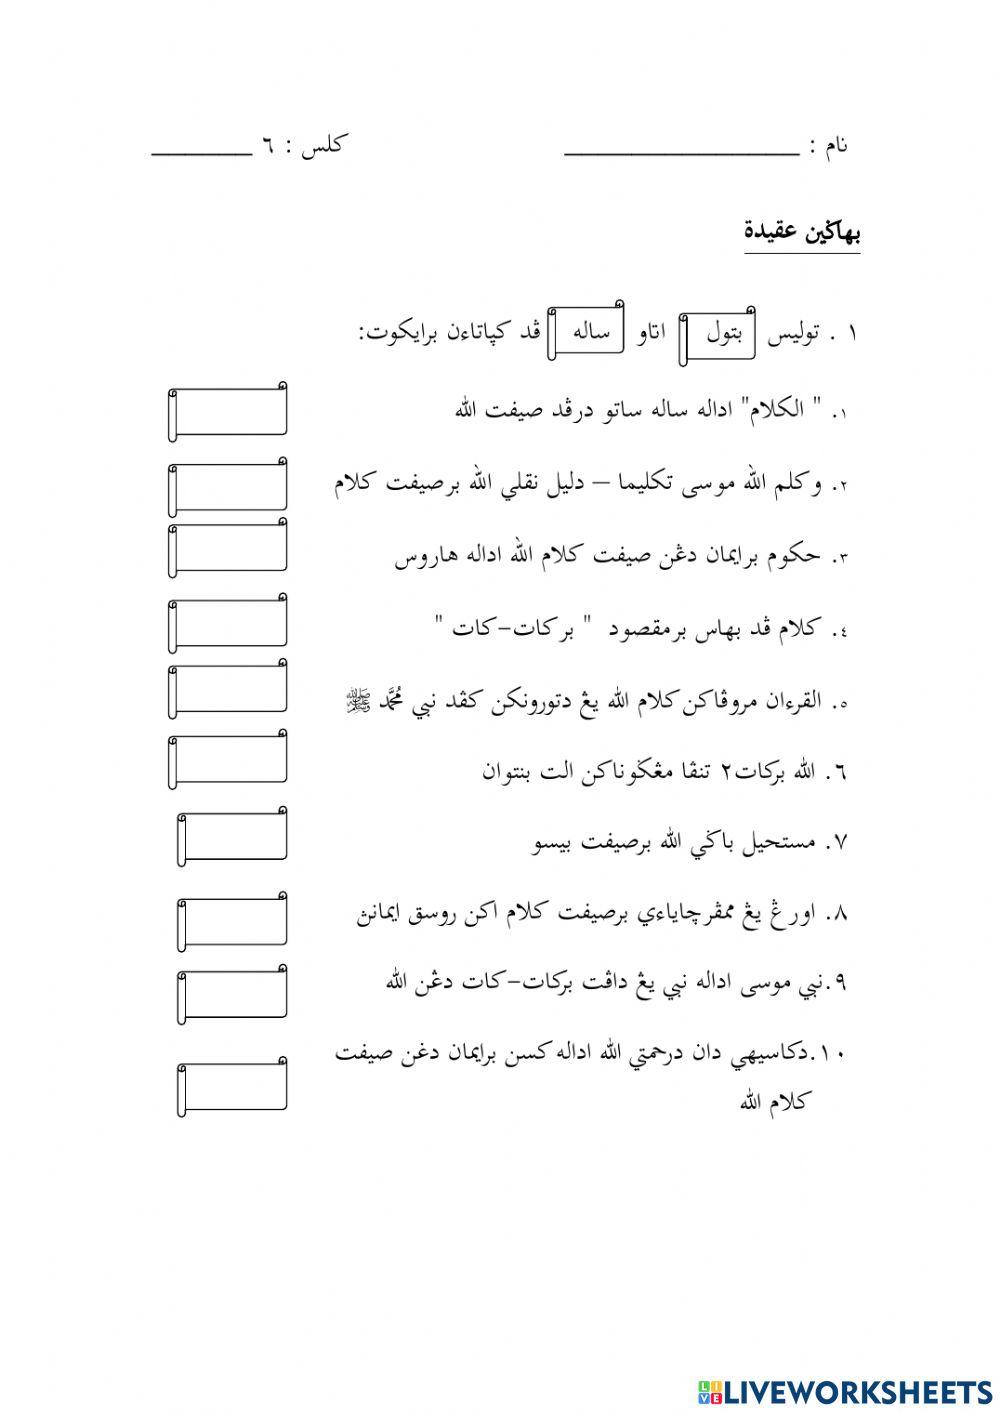 نام : ______________ كلس : ٦ ______
بهاڬين عقيدة
١ . توليس بتول اتاو ساله ڤد كڽاتاءن برايكوت:
١. " الكلام" اداله ساله ساتو درڤد صيفت الله
٢. وكلم الله موسى تكليما – دليل نقلي الله برصيفت كلام
٣. حكوم برايمان دڠن صيفت كلام الله اداله هاروس
٤. كلام ڤد بهاس برمقصود " بركات-كات "
٥. القرءان مروڤاكن كلام الله يڠ دتورونكن كڤد نبي مُحمَّد ﷺ
٦. الله بركات٢ تنڤا مڠݢوناكن الت بنتوان
٧. مستحيل باݢي الله برصيفت بيسو
٨. اورڠ يڠ ممڤرچاياءي برصيفت كلام اكن روسق ايمانڽ
٩.نبي موسى اداله نبي يڠ داڤت بركات-كات دڠن الله
١٠.دكاسيهي دان درحمتي الله اداله كسن برايمان دغن صيفت
كلام الله
LIVEWORKSHEETS